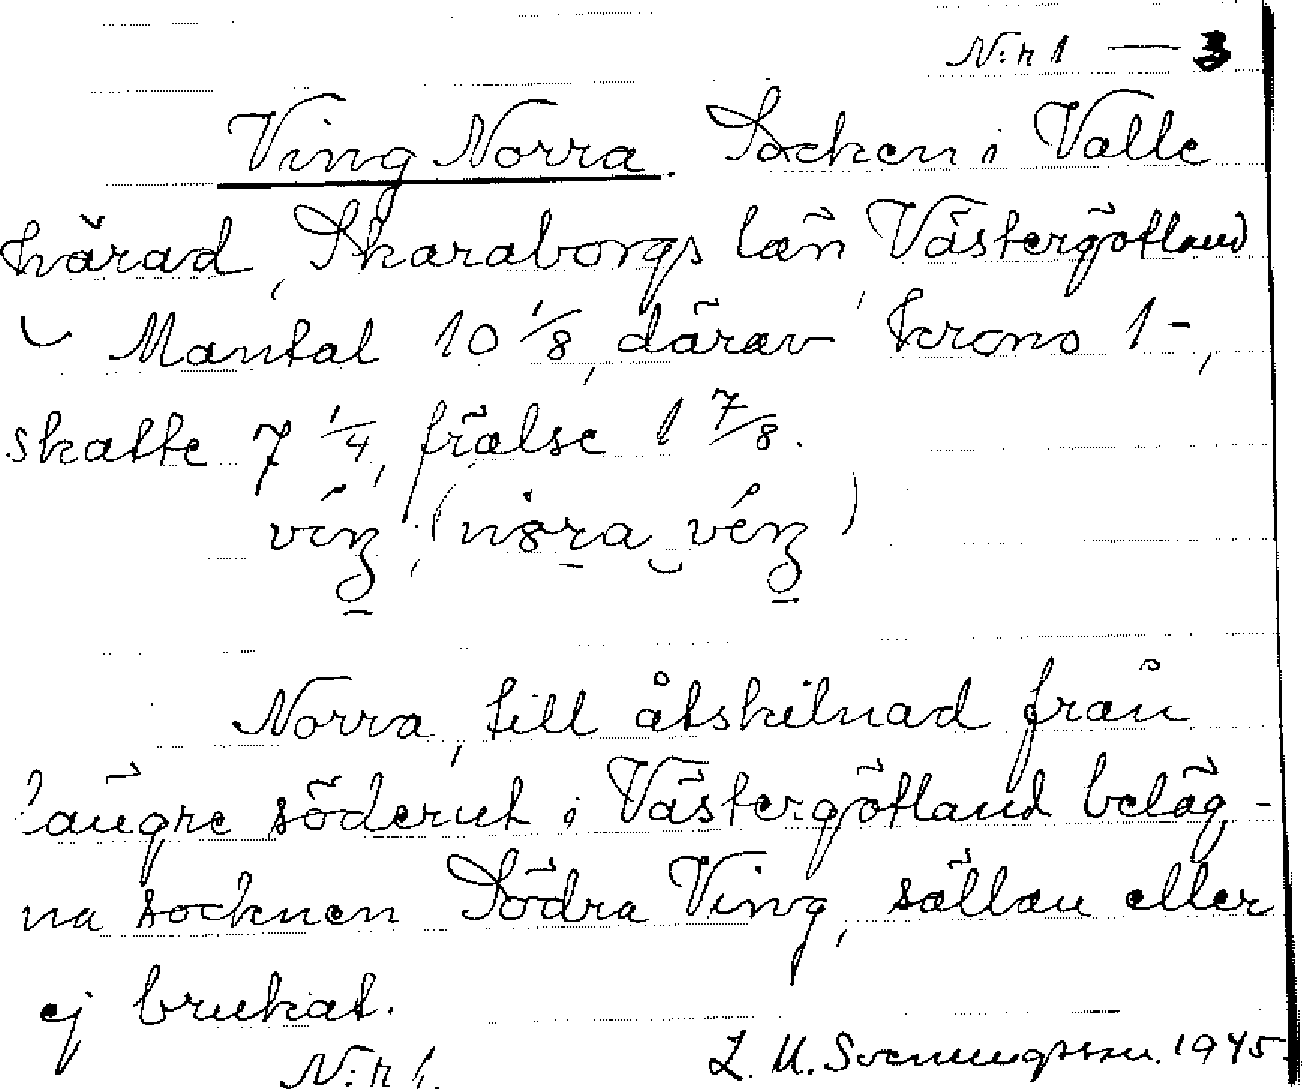 N:r 1 — 3
Ving Norra. Socken i Valle
härad, Skaraborgs län, Västergötland
Mantal 10 1/8, därav krono 1-,
skatte 7 1/4, frälse 1 7/8.
Norra, till åtskilnad från
längre söderut i Västergötland beläg-
na socknen Södra Ving, sällan eller
ej brukat.
N:r 1. L. M. Svenungsson. 1945.